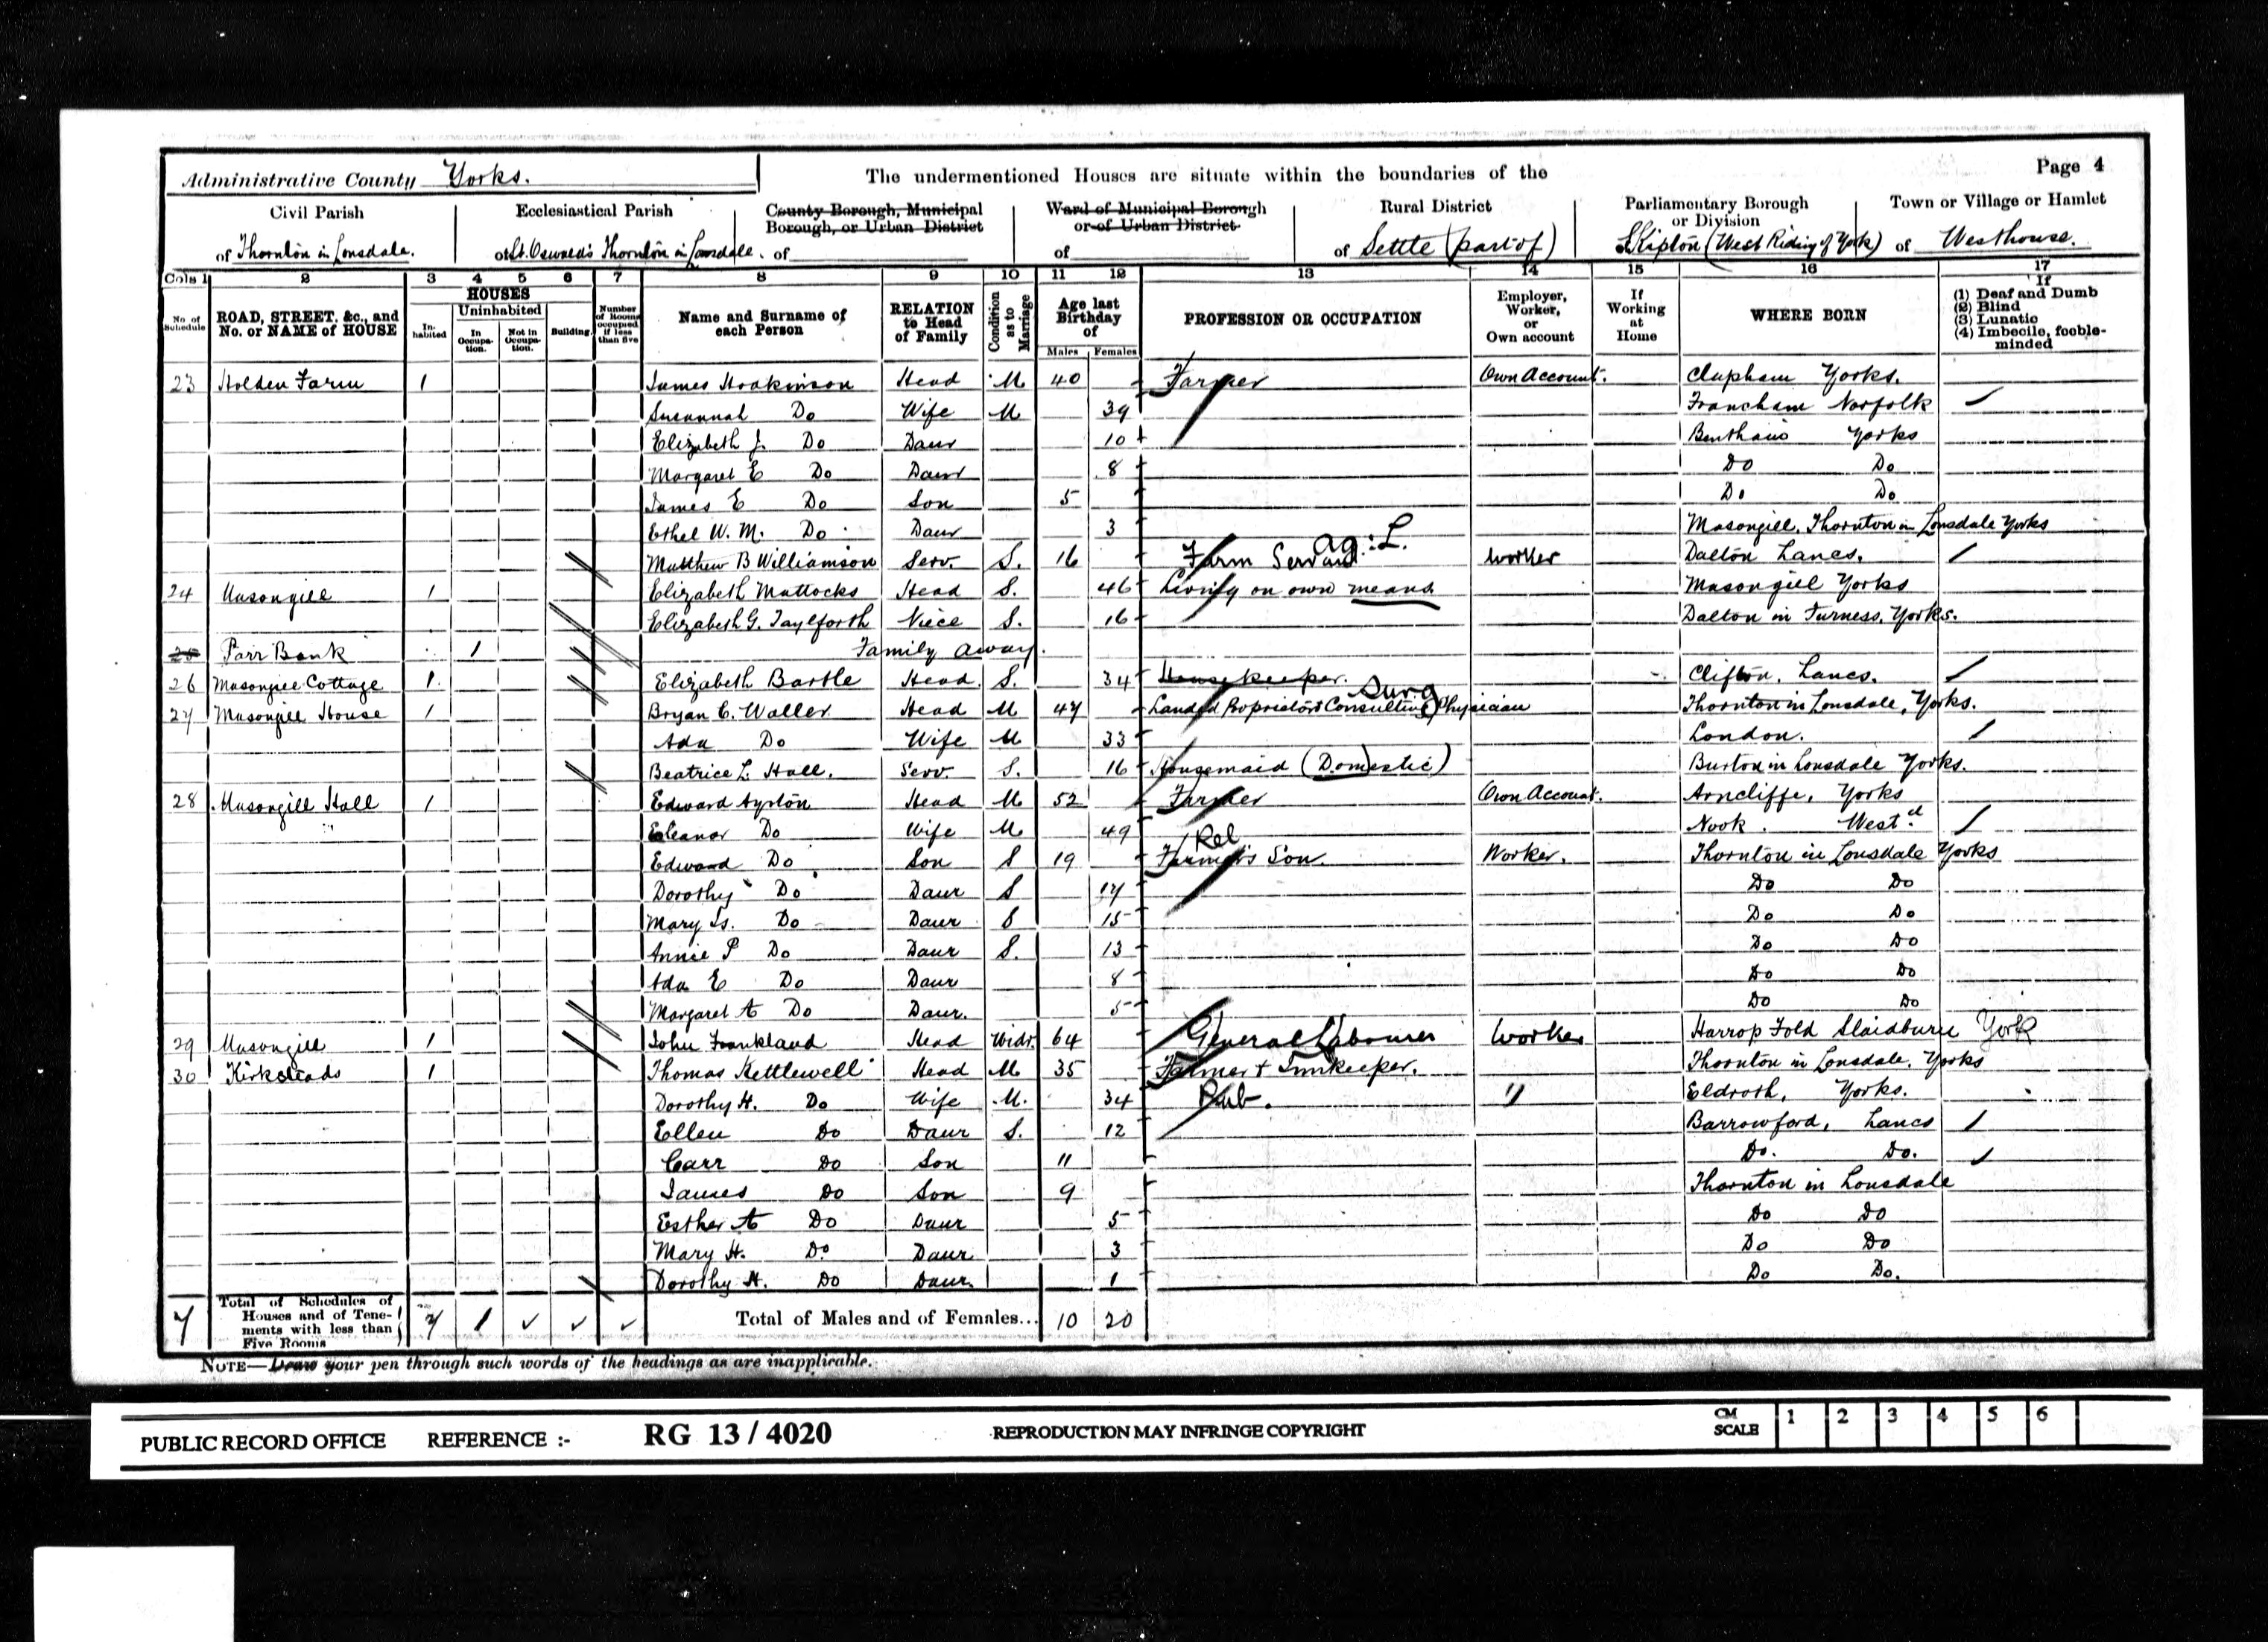 Page 4
Administrative County Yorks.
The undermentioned Houses are situate within the boundaries of the
Civil Parish
of Thornton in Lonsdale.
Ecclesiastical Parish
of St. Oswald's Thornton in Lonsdale.
County Borough, Municipal Borough, or Urban District
of
Ward of Municipal Borough or of Urban District
of
Rural District
of Settle (part of)
Parliamentary Borough or Division
of Skipton (West Riding of York)
Town or Village or Hamlet
of Westhouse.
Cols 1 2 3 4 5 6 7 8 9 10 11 12 13 14 15 16 17
No of Schedule
ROAD, STREET, &c., and No. or NAME of HOUSE
HOUSES
Inhabited
Uninhabited
In Occupation.
Not in Occupation.
Building.
Number of Rooms occupied if less than five
Name and Surname of each Person
RELATION to Head of Family
Condition as to Marriage
Age last Birthday of
Males Females
PROFESSION OR OCCUPATION
Employer, Worker, or Own account
If Working at Home
WHERE BORN
If
(1) Deaf and Dumb
(2) Blind
(3) Lunatic
(4) Imbecile, feeble-minded
23 Holden Farm 1 James Hodkinson Head M 40 Farmer Own Account. Clapham Yorks.
Susannah Do Wife M 39 Francham Norfolk
Elizabeth J. Do Daur 10 Bentham Yorks
Margaret E Do Daur 8 Do Do
James E Do Son 5 Do Do
Ethel W. M. Do Daur 3 Masongill, Thornton in Lonsdale Yorks
Matthew B Williamson Serv. S. 16 Farm Servant ag: L. Worker Dalton Lancs.
24 Masongill 1 Elizabeth Mattocks Head S. 46 Living on own means Masongill Yorks
Elizabeth G. Taylforth Niece S. 16 Dalton in Furness, Yorks.
25 Parr Bank 1 Family away.
26 Masongill Cottage 1 Elizabeth Bartle Head S. 34 Housekeeper. Clifton, Lancs.
27 Masongill House 1 Bryan C. Waller Head M 47 Landed Proprietor & Consulting Physician Surg Thornton in Lonsdale, Yorks.
Ada Do Wife M 33 London.
Beatrice L. Hall. Serv. S. 16 Housemaid (Domestic) Burton in Lonsdale Yorks.
28 Masongill Hall 1 Edward Ayrton Head M 52 Farmer Own Account. Arncliffe, Yorks
Eleanor Do Wife M. 49 Nook. Westd.
Edward Do Son S 19 Farmer's Son Rel Worker. Thornton in Lonsdale Yorks
Dorothy Do Daur S 17 Do Do
Mary Is. Do Daur S 15 Do Do
Annie P Do Daur S. 13 Do Do
Ada E Do Daur 8 Do Do
Margaret A Do Daur. 5 Do Do
29 Masongill 1 John Frankland Head Widr. 64 General Labourer Worker Harrop Fold Slaidburn York
30 Kirksteads 1 Thomas Kettlewell Head M 35 Farmer & Innkeeper. Thornton in Lonsdale, Yorks
Dorothy H. Do Wife M. 34 Pub. Eldroth, Yorks.
Ellen Do Daur S. 12 Barrowford, Lancs
Carr Do Son 11 Do. Do.
James Do Son 9 Thornton in Lonsdale
Esther A Do Daur 5 Do Do
Mary H. Do Daur 3 Do Do
Dorothy A. Do Daur. 1 Do Do.
7 Total of Schedules of Houses and of Tenements with less than Five Rooms 7 1 Total of Males and of Females... 10 20
NOTE—Draw your pen through such words of the headings as are inapplicable.
PUBLIC RECORD OFFICE REFERENCE :- RG 13 / 4020 REPRODUCTION MAY INFRINGE COPYRIGHT CM SCALE 1 2 3 4 5 6